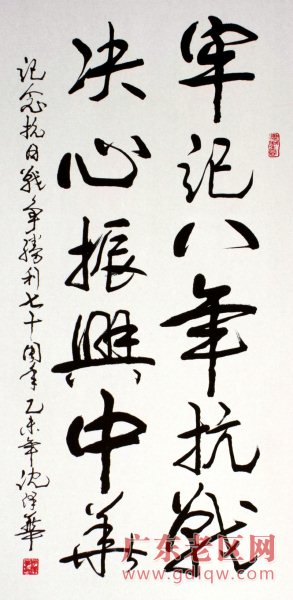 牢记八年抗戰
决心振興中华
记念抗日戰争勝利七十周年乙未年沈泽華
广东老区网
www.gdlqw.com